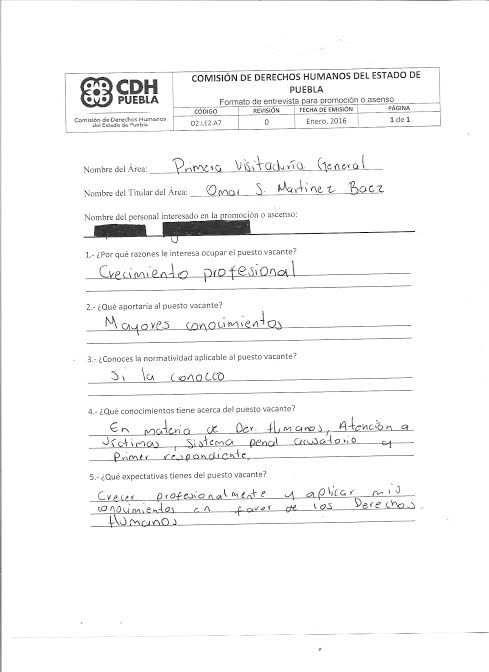 CDH
PUEBLA
Comisión de Derechos Humanos
del Estado de Puebla
COMISIÓN DE DERECHOS HUMANOS DEL ESTADO DE
PUEBLA
Formato de entrevista para promoción o asenso
CÓDIGO REVISIÓN FECHA DE EMISIÓN PÁGINA
02.LE2.A7 0 Enero, 2016 1 de 1
Nombre del Área: Primera Visitaduría General
Nombre del Titular del Área: Omar S. Martinez Baez
Nombre del personal interesado en la promoción o ascenso:
1.- ¿Por qué razones le interesa ocupar el puesto vacante?
Crecimiento profesional
2.- ¿Qué aportaría al puesto vacante?
Mayores conocimientos
3.- ¿Conoces la normatividad aplicable al puesto vacante?
Si la conozco
4.- ¿Qué conocimientos tiene acerca del puesto vacante?
En materia de Der. Humanos, Atención a
víctimas, Sistema penal acusatorio y
Primer respondiente.
5.- ¿Qué expectativas tienes del puesto vacante?
Crecer profesionalmente y aplicar mis
conocimientos en favor de los Derechos
Humanos